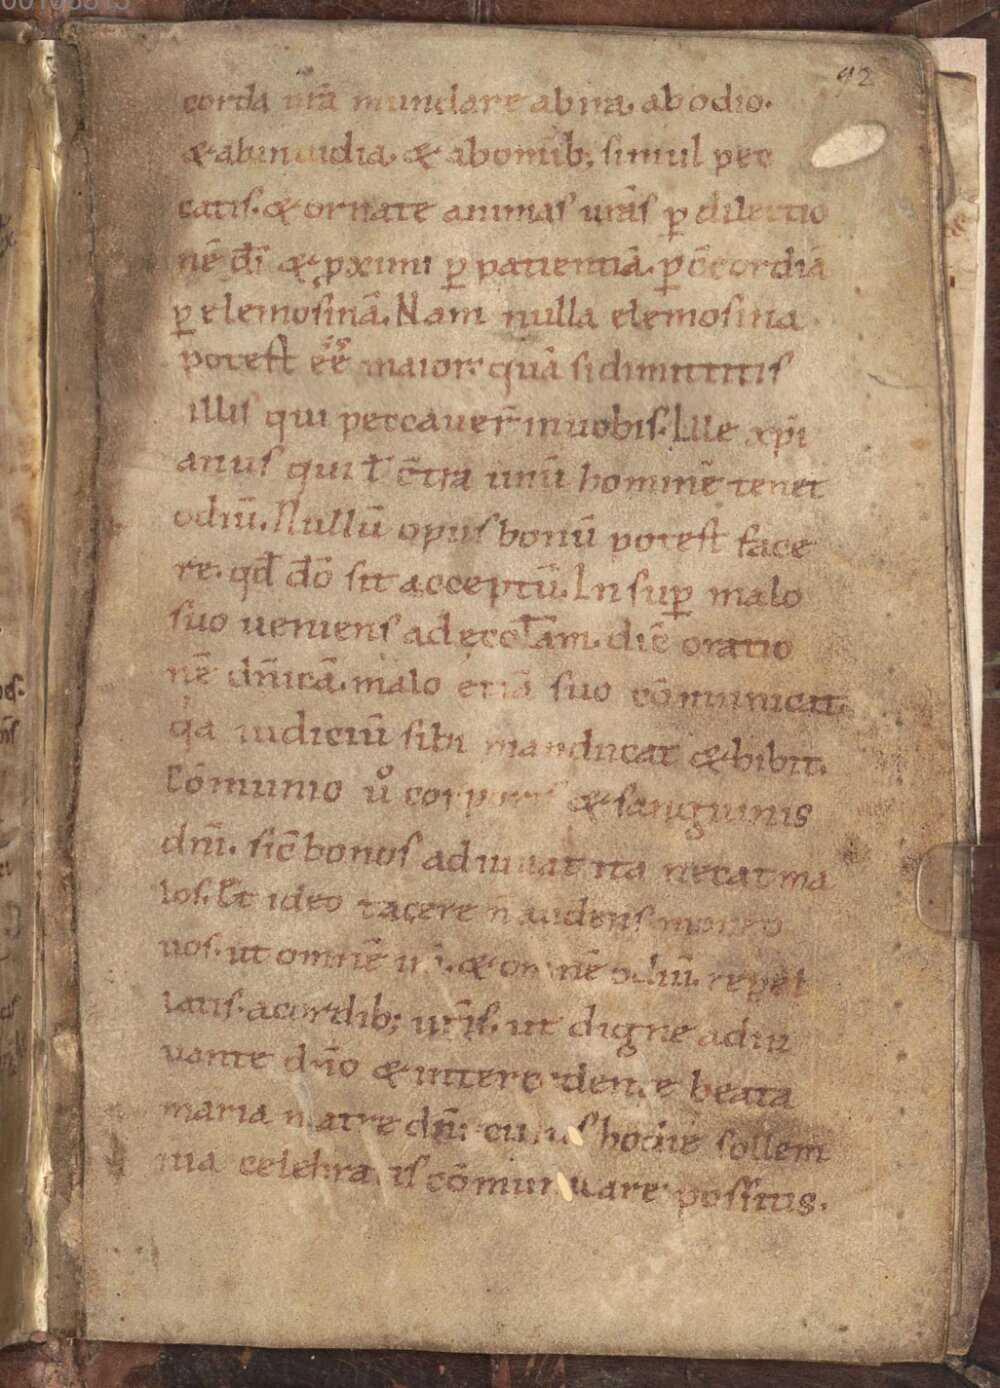 00103313
92
corda ur̄a mundare ab ira. ab odio.
& ab inuidia. & ab omīb; simul pec
catis. & ornate animas ur̄as ꝑ dilectio
nē dī & ꝓximi ꝑ patientiā. ꝑ cōcordiā
ꝑ elemosinā. Nam nulla elemosina
potest ēē maior. quā si dimittitis
illis qui peccauer̄ in uobis. Ille xp̄i
anus qui ł cōtra unū hominē tenet
odiū. Nullū opus bonū potest face
re. qd̄ dō sit acceptū. In suꝑ malo
suo ueniens ad ęccłam. diē oratio
nē dn̄icā. malo etiā suo cōmunicat.
qa iudiciū sibi manducat & bibit.
Cōmunio ů corporis & sanguinis
dn̄i. sic̄ bonos adiuuat ita necat ma
los. Et ideo tacere n̄ audens moneo
uos. ut omnē irā. & omnē odiū. repel
latis. a cordib; ur̄is. ut digne adiu
uante dn̄o & intercedente beata
maria matre dn̄i cuius hodie sollem
nia celebratis cōmunicare possitis.